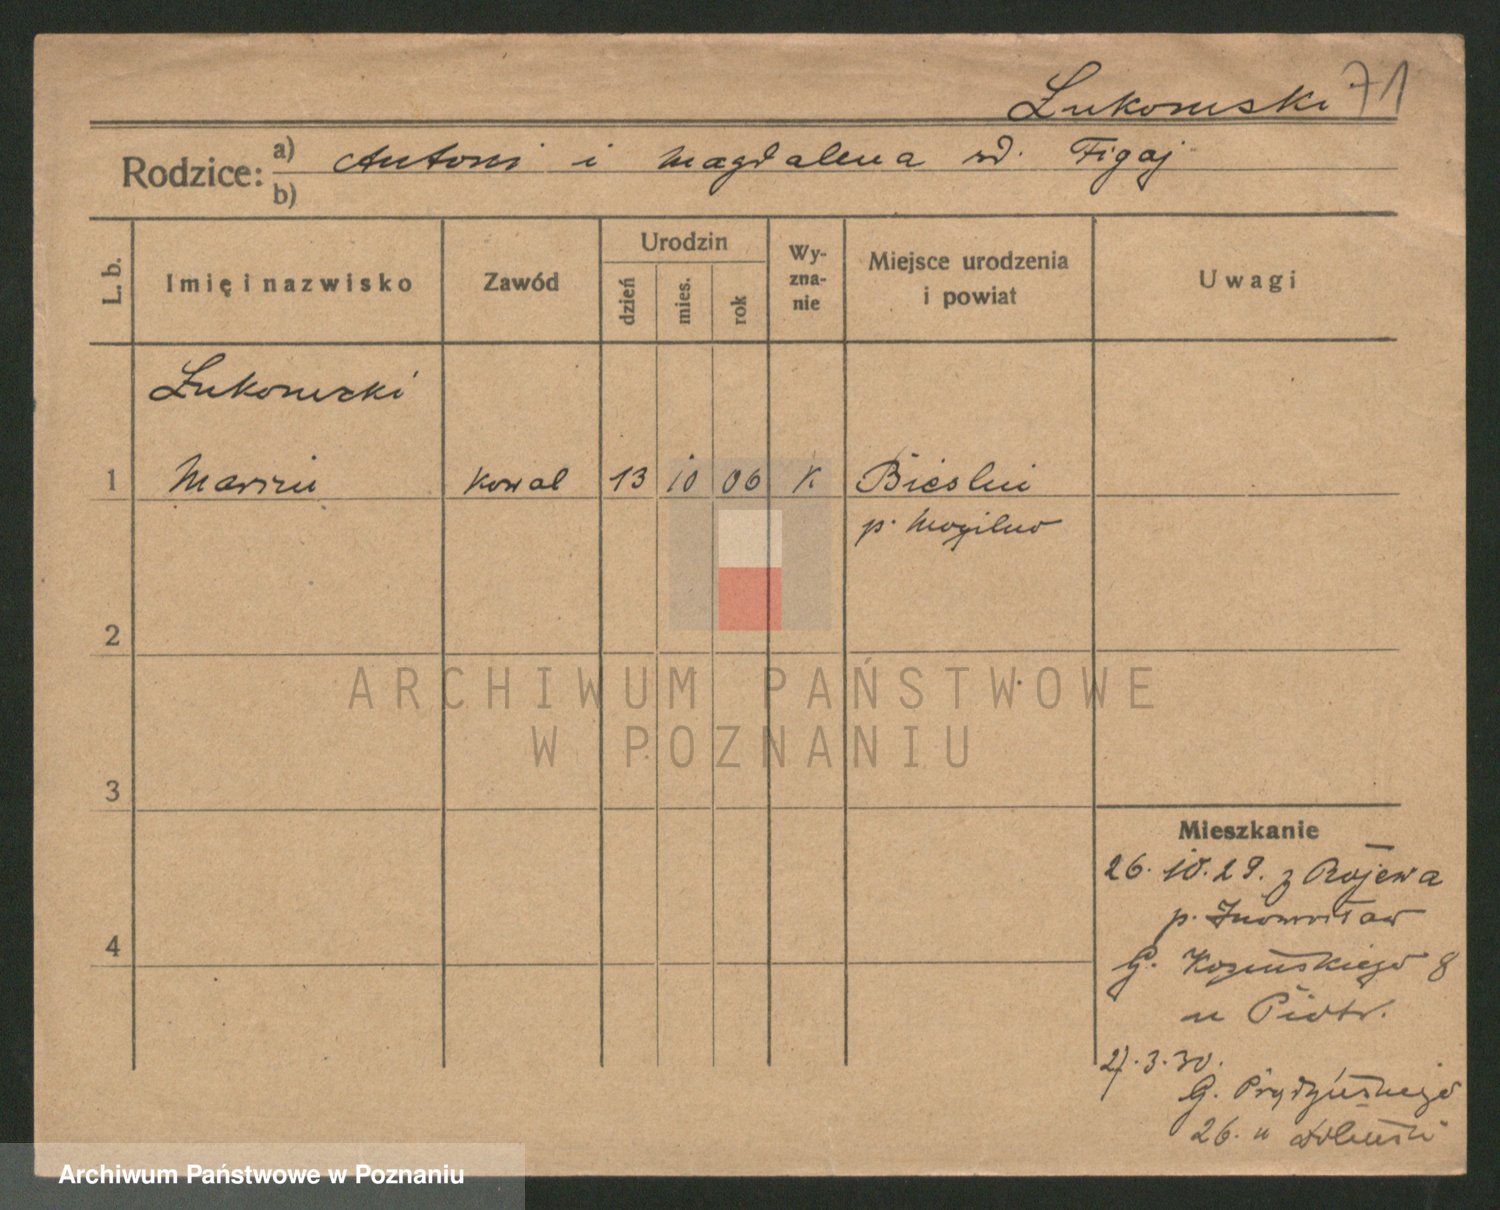 Łukomski 71
Rodzice: a) Antoni i Magdalena zd. Figaj
b)
L. b.
Imię i nazwisko
Zawód
Urodzin
dzień
mies.
rok
Wy-
zna-
nie
Miejsce urodzenia
i powiat
Uwagi
Łukomski
1 Marcin kowal 13 10 06 k. Bieslin
p. Mogilno
2
ARCHIWUM PAŃSTWOWE
W POZNANIU
3
Mieszkanie
26. 10. 29. z Rojewa
p. Inowrocław
4
G. 8
u Piotr.
27. 3. 30.
G. Prądzyńskiego
26. u
Archiwum Państwowe w Poznaniu